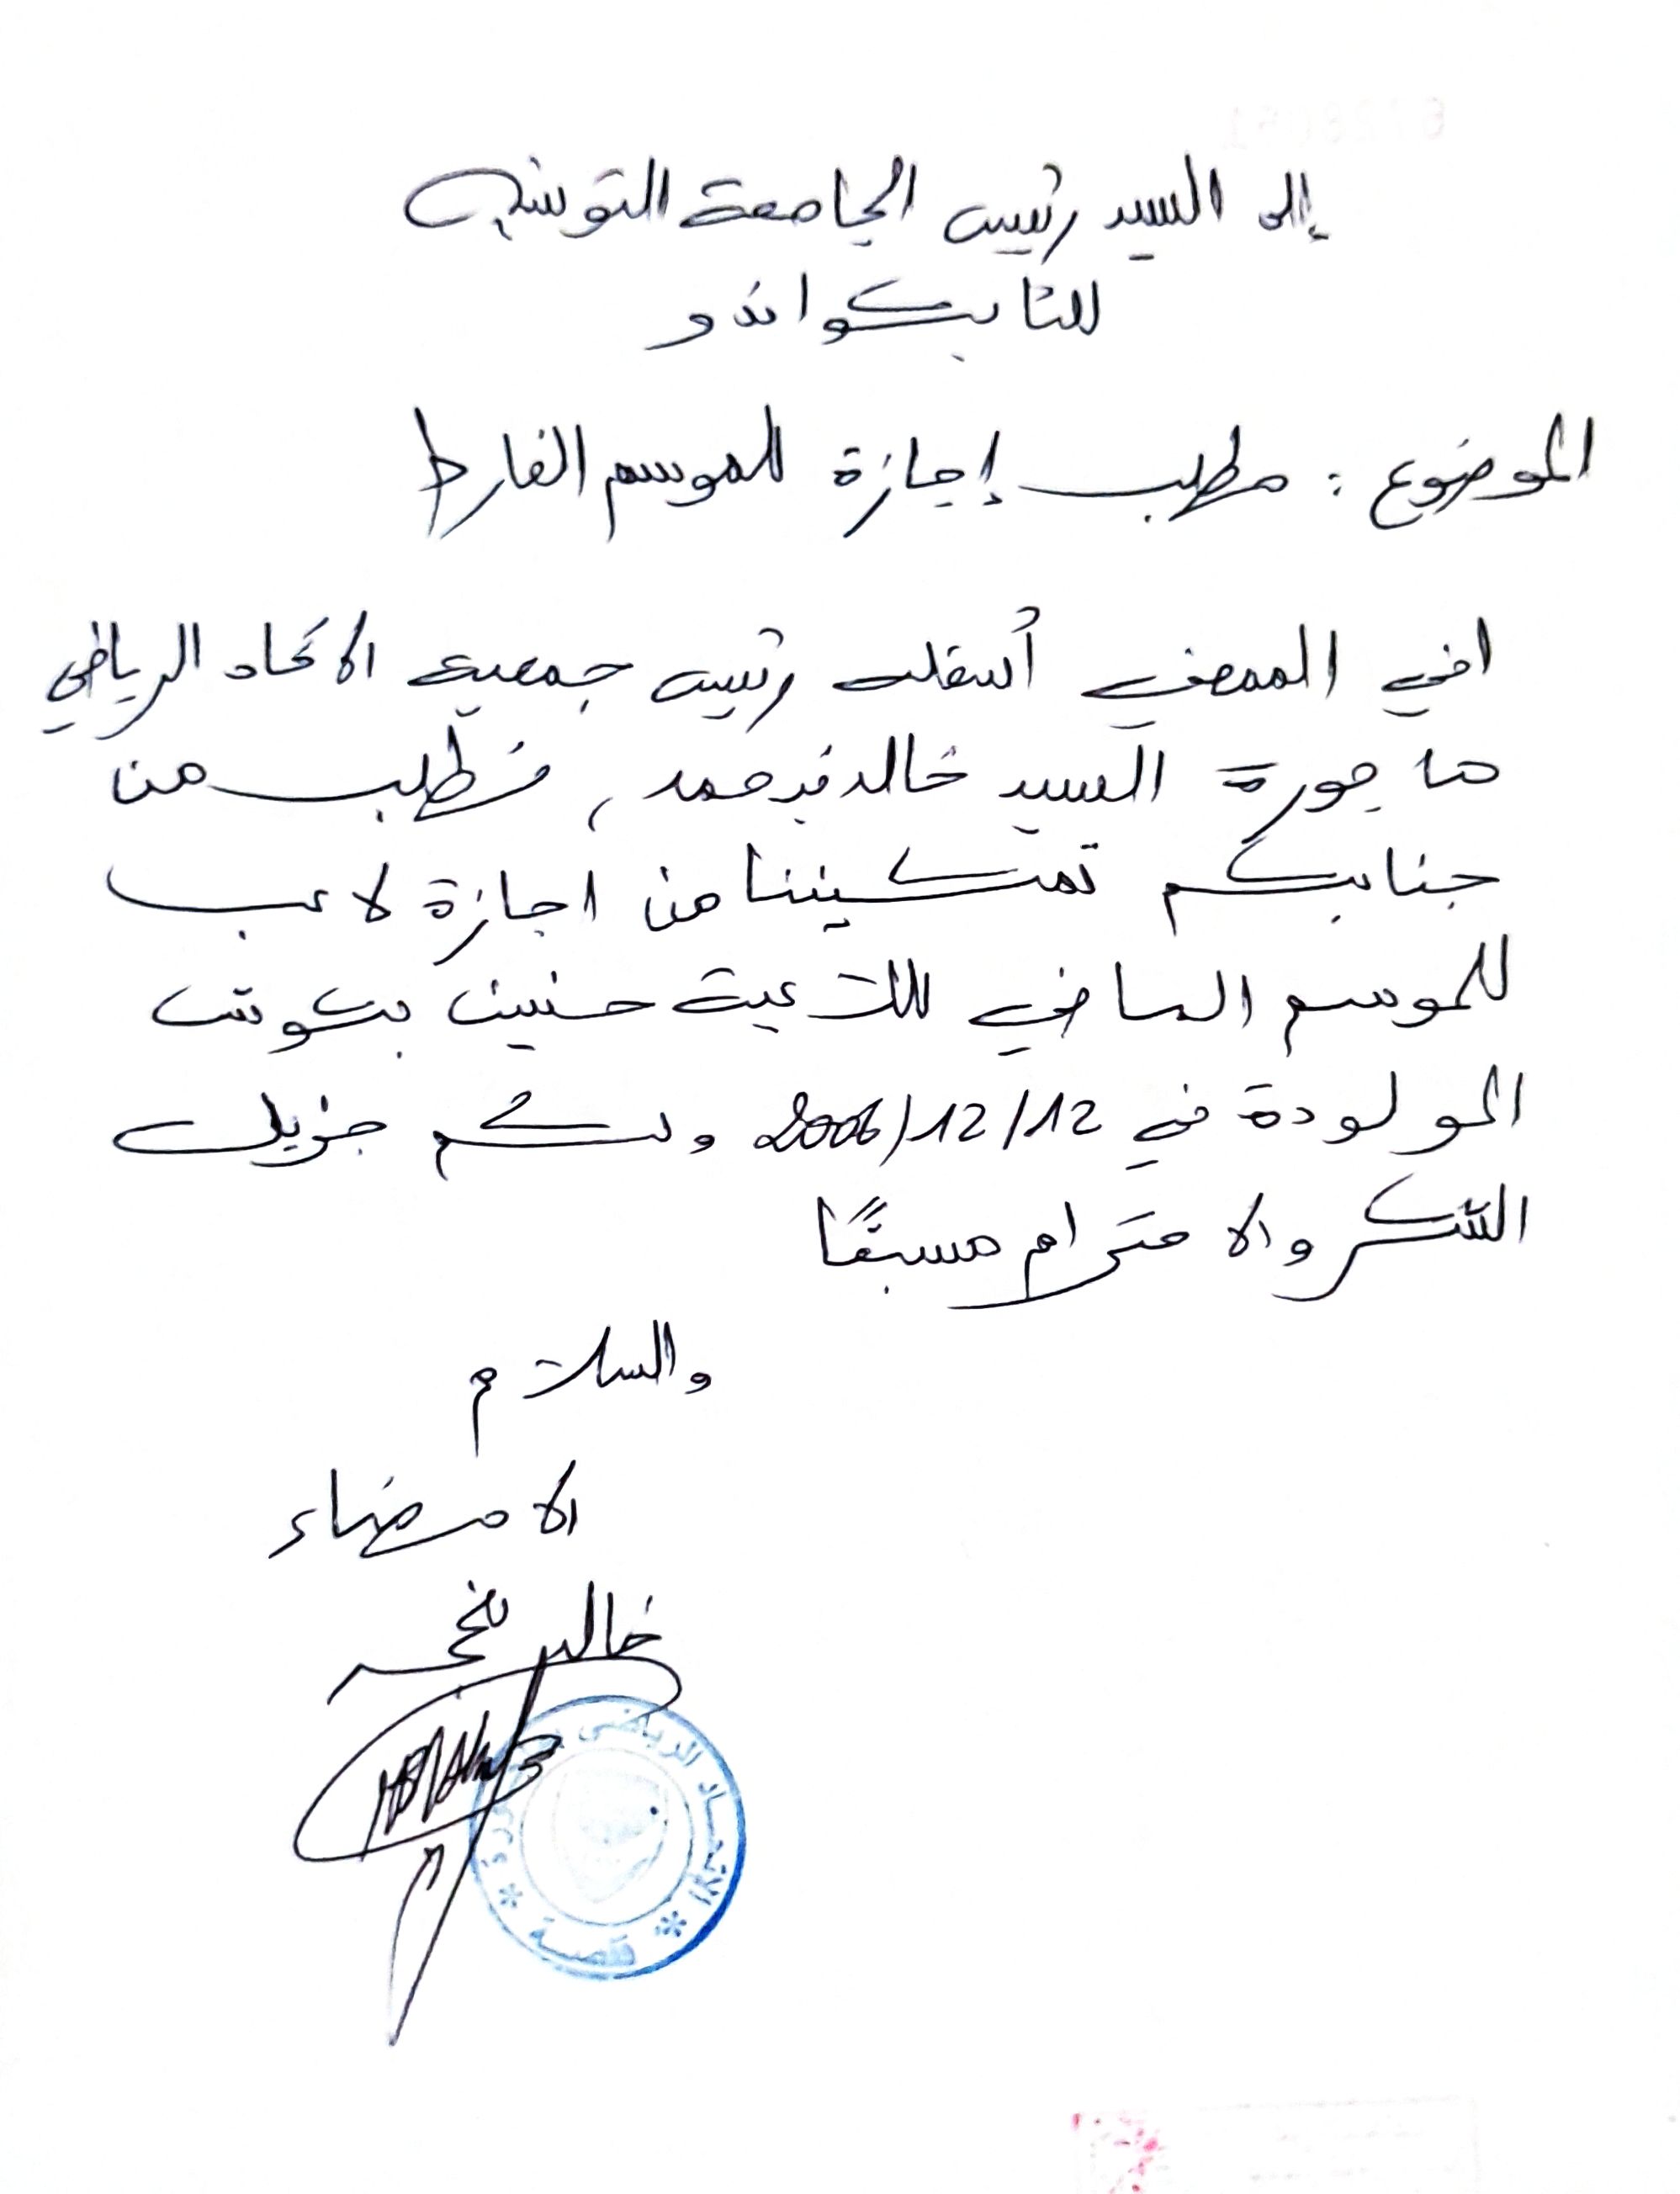 إلى السيد رئيس الجامعة التونسية
للتايكواندو
الموضوع : مطلب إجازة للموسم الفارط
اني الممضي أسفله رئيس جمعية الاتحاد الرياضي
بـاجورة السيد خالد ، نطلب من
جنابكم تمكيننا من اجازة لاعب
للموسم الماضي للاعبة حنين بكوش
المولودة في 2006/12/12 ولكم جزيل
الشكر والاحترام مسبقًا
والسلام
الامضاء
خالد
الإتحاد الرياضي
قفصة